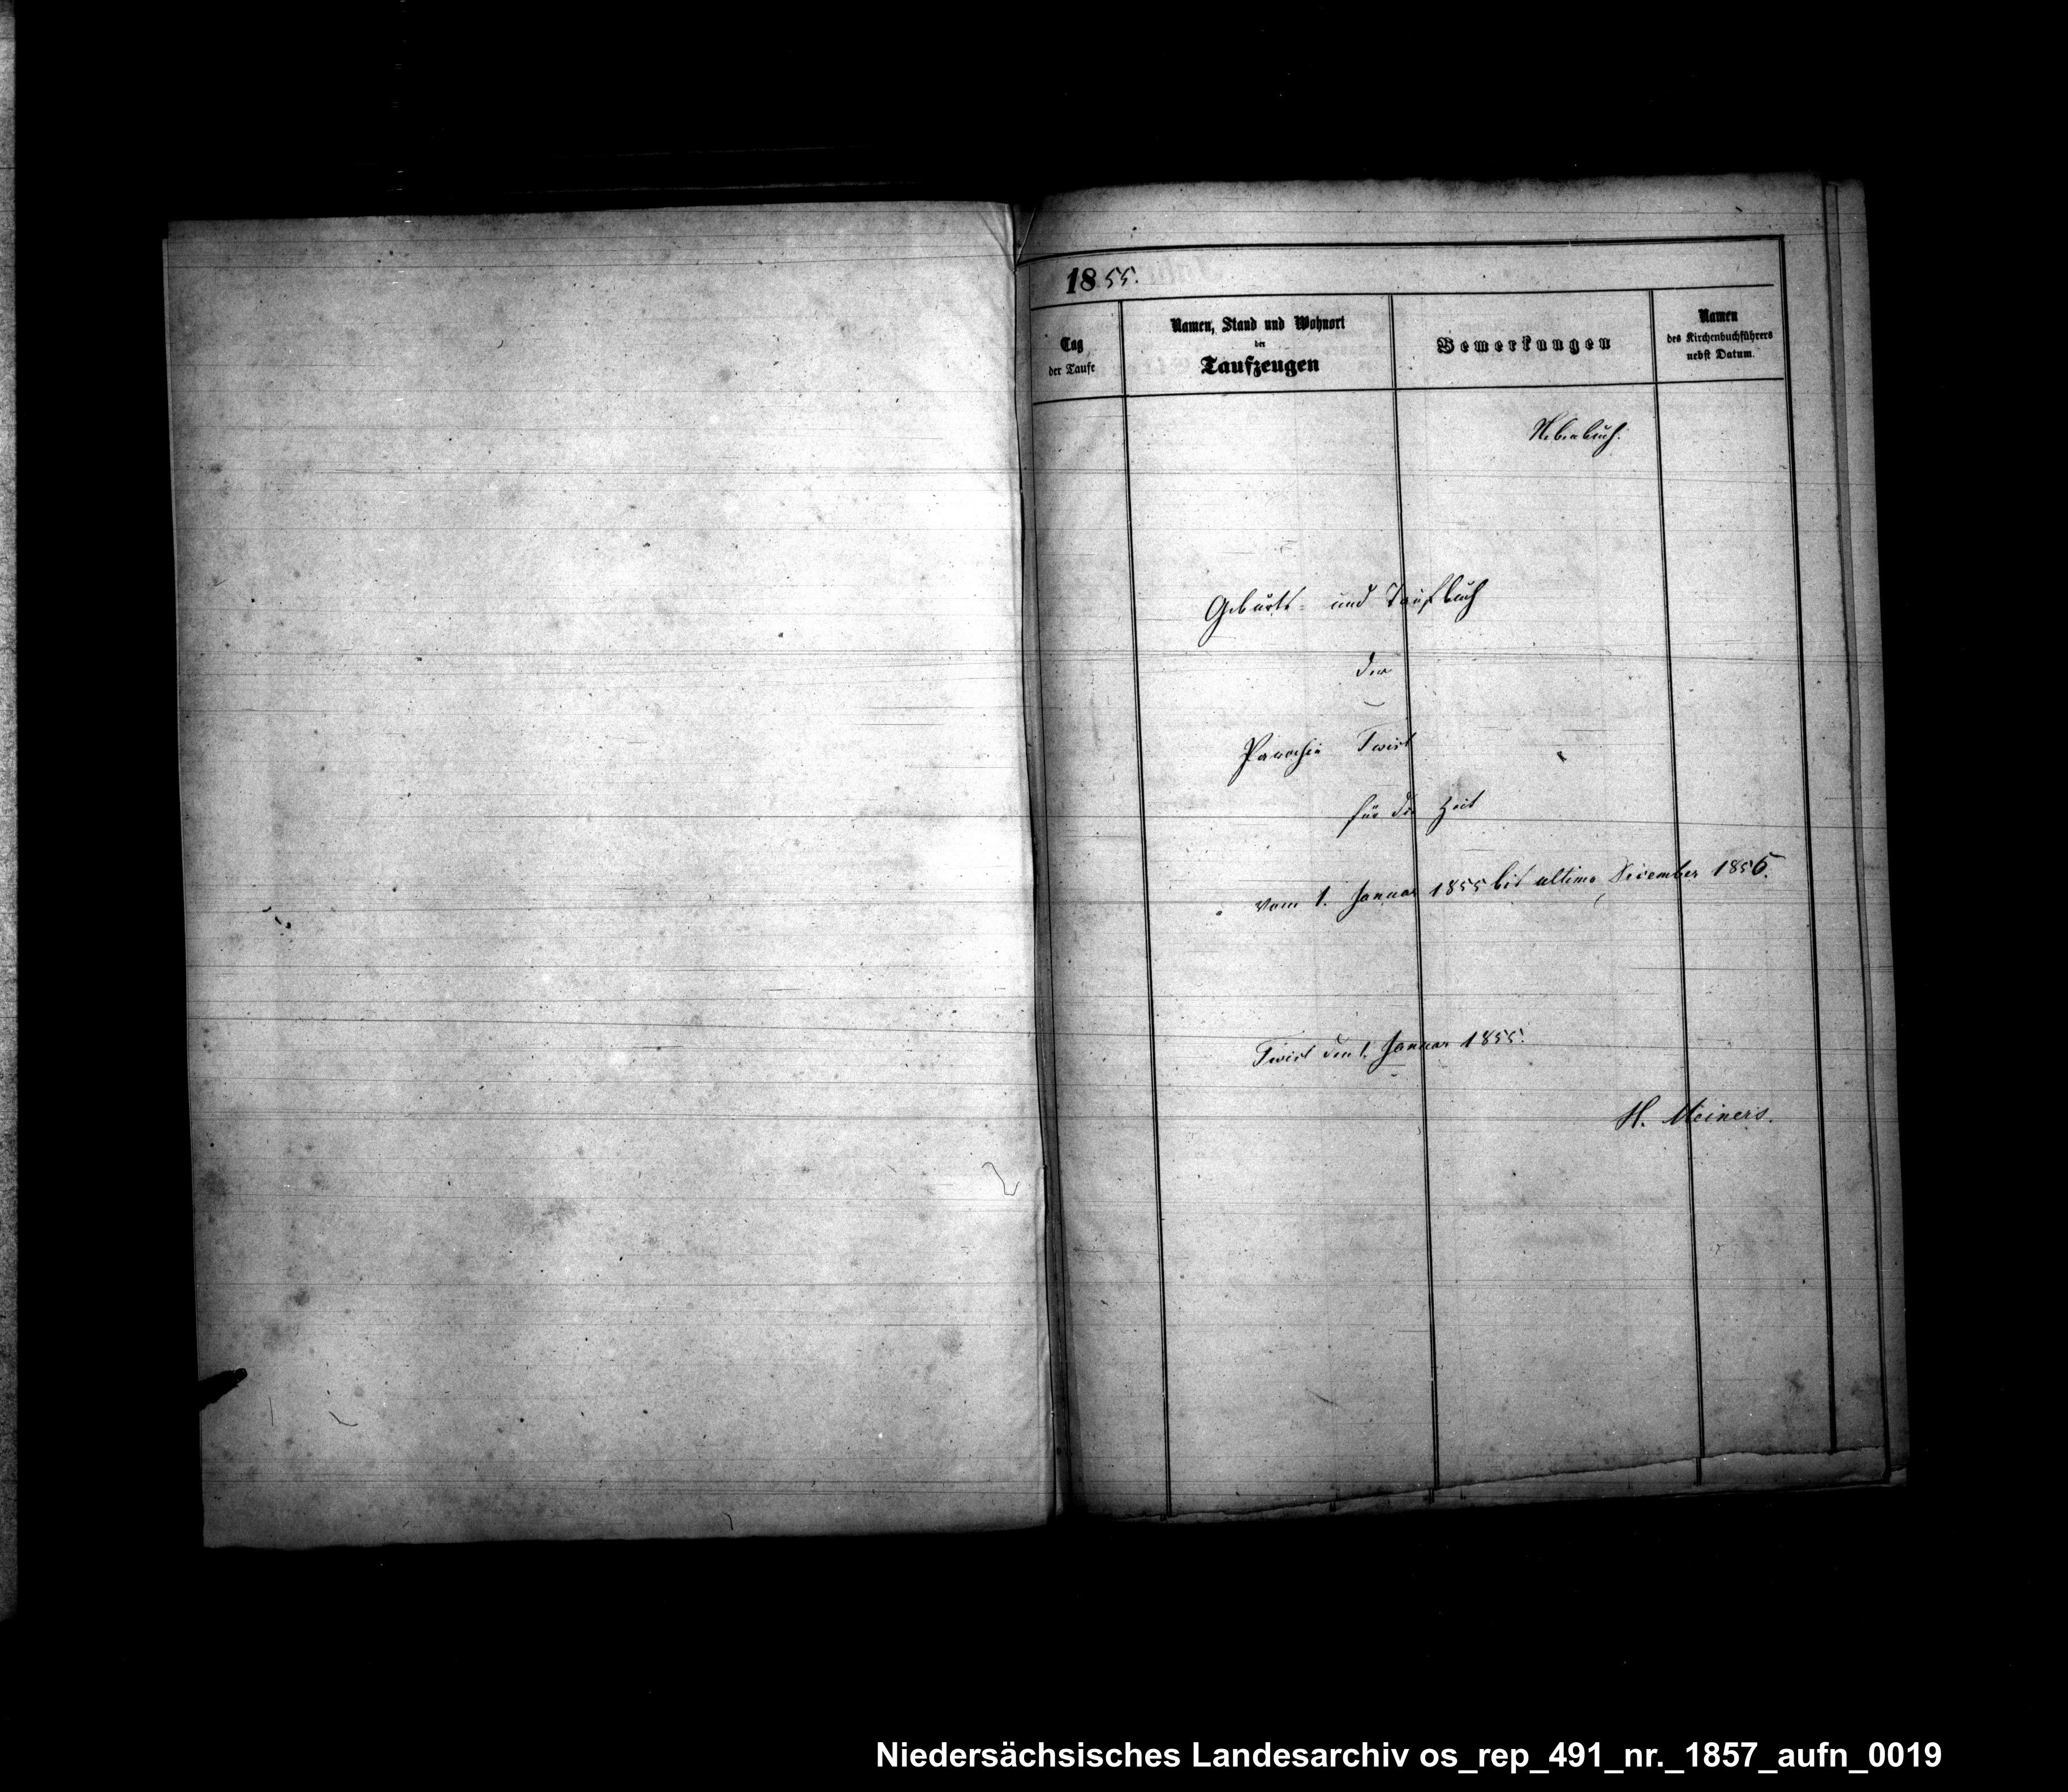 1855.
Tag
der Taufe
Namen, Stand und Wohnort
der
Taufzeugen
Bemerkungen
Namen
des Kirchenbuchführers
nebst Datum.
Nebenbuch.
Geburts- und Taufbuch
der
Parochie Twist
für die Zeit
vom 1. Januar 1855 bis ultimo December 1856.
Twist den 1. Januar 1855.
H. Meiners.
Niedersächsisches Landesarchiv os_rep_491_nr._1857_aufn_0019